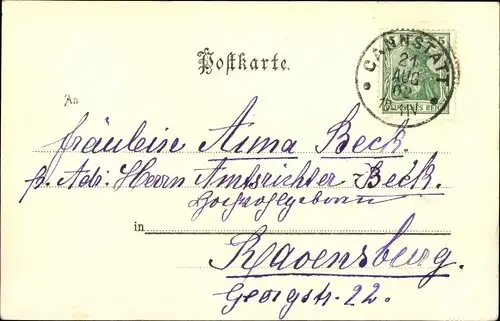 Postkarte.
CANNSTATT
21
AUG
02
5
DEUTSCHES REICH
An
Fräulein Anna Beck.
p. Adr. Herrn Amtsrichter Beck.
Hochwohlgeboren
in
Ravensburg.
Georgstr. 22.